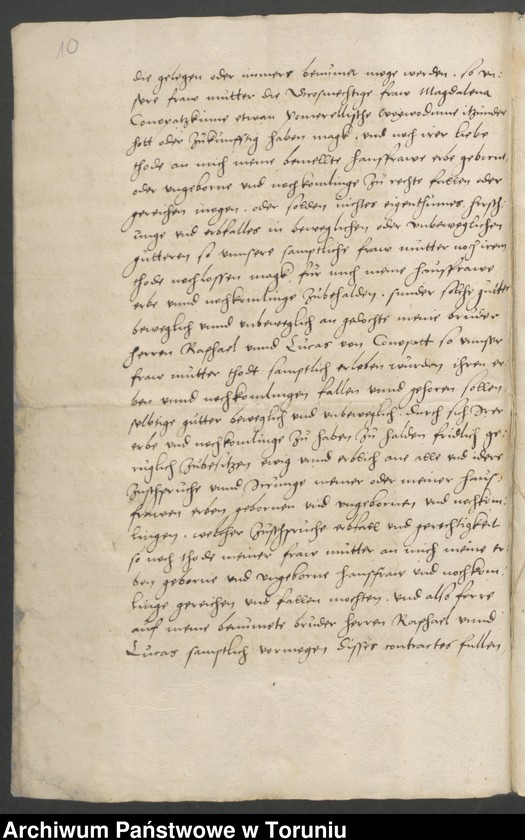 10
die gelegen oder immers benumet moge werden. so un:
sere fraw mutter die Grosmechtige fraw Magdalena
Conopatzkinne etwan Pomerellische Woywodinne itzunder
hott oder zukunfftig haben magk. und noch irer liebe
thode an mich meine bemellte hausfrawe erbe geborne
oder ungeborne und nochkomlinge zu rechte fallen oder
gereichen mogen. oder solden nichtes eigenthumes,
unge und erbfalles in beweglichen oder unbeweglichen
gutteren so unnsere samptliche fraw mutter noch irem
thode nochlossen magk. fur mich meine hausfrawe
erbe unnd nochkomlinge zubehalden. sunder solche gutter
beweglich unnd unbeweglich an gedochte meine bruder
herren Raphael unnd Lucas von Conopatt so unnser
fraw mutter thodt samptlich erleben wurden ihren er:
ben unnd nochkomlingen fallen unnd gehoren sollen
selbtige gutter beweglich und unbeweglich. durch sich Irer
erbe und nochkomlinge zu haben zu halden fridlich ge:
ruglich zubesitzen ewig unnd erblich ane alle und idere
Zuschpruche unnd Irrunge meiner oder meiner haus:
frawen erben gebornen und ungebornen und nochkom:
lingen. welcher zuschpruche erbfall und gerechtigkeit
so noch thode meiner fraw mutter an mich meine er:
ben geborne und ungeborne hausfraw und nochkom:
linge gereichen und fallen mochten. und also ferre
auf meine benumete bruder herren Raphael unnd
Lucas samptlich vormogen disses contractes fallen
Archiwum Państwowe w Toruniu